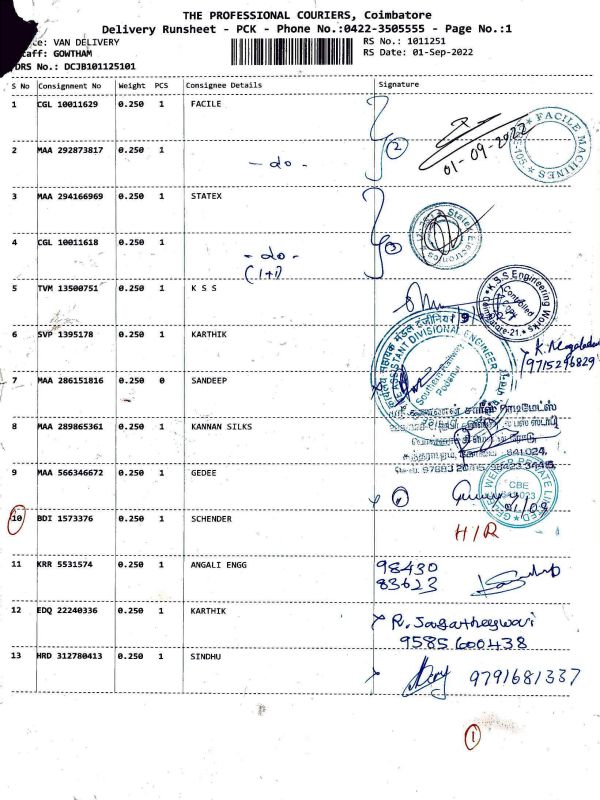 THE PROFESSIONAL COURIERS, Coimbatore
Delivery Runsheet - PCK - Phone No.:0422-3505555 - Page No.:1
: VAN DELIVERY
RS No.: 1011251
: GOWTHAM
RS Date: 01-Sep-2022
DRS No.: DCJB101125101
S No Consignment No Weight PCS Consignee Details Signature
1 CGL 10011629 0.250 1 FACILE
FACILE MACHINES
01-09-2022
2 MAA 292873817 0.250 1 - do - 2
3 MAA 294166969 0.250 1 STATEX
Statex Electronics
4 CGL 10011618 0.250 1 - do - 3
(1+1)
5 TVM 13500751 0.250 1 K S S
K.S.S. Engineering Works
Controlled Copy
6 SVP 1395178 0.250 1 KARTHIK
9715296829
ASSISTANT DIVISIONAL ENGINEER
Southern Railway
Podanur
7 MAA 286151816 0.250 0 SANDEEP
8 MAA 289865361 0.250 1 KANNAN SILKS
9 MAA 566346672 0.250 1 GEDEE
GEDEE WEILER PRIVATE LIMITED
CBE
641023
10 BDI 1573376 0.250 1 SCHENDER
H/R
11 KRR 5531574 0.250 1 ANGALI ENGG 98430
83623
12 EDQ 22240336 0.250 1 KARTHIK
9585600438
13 HRD 312780413 0.250 1 SINDHU
9791681337
1